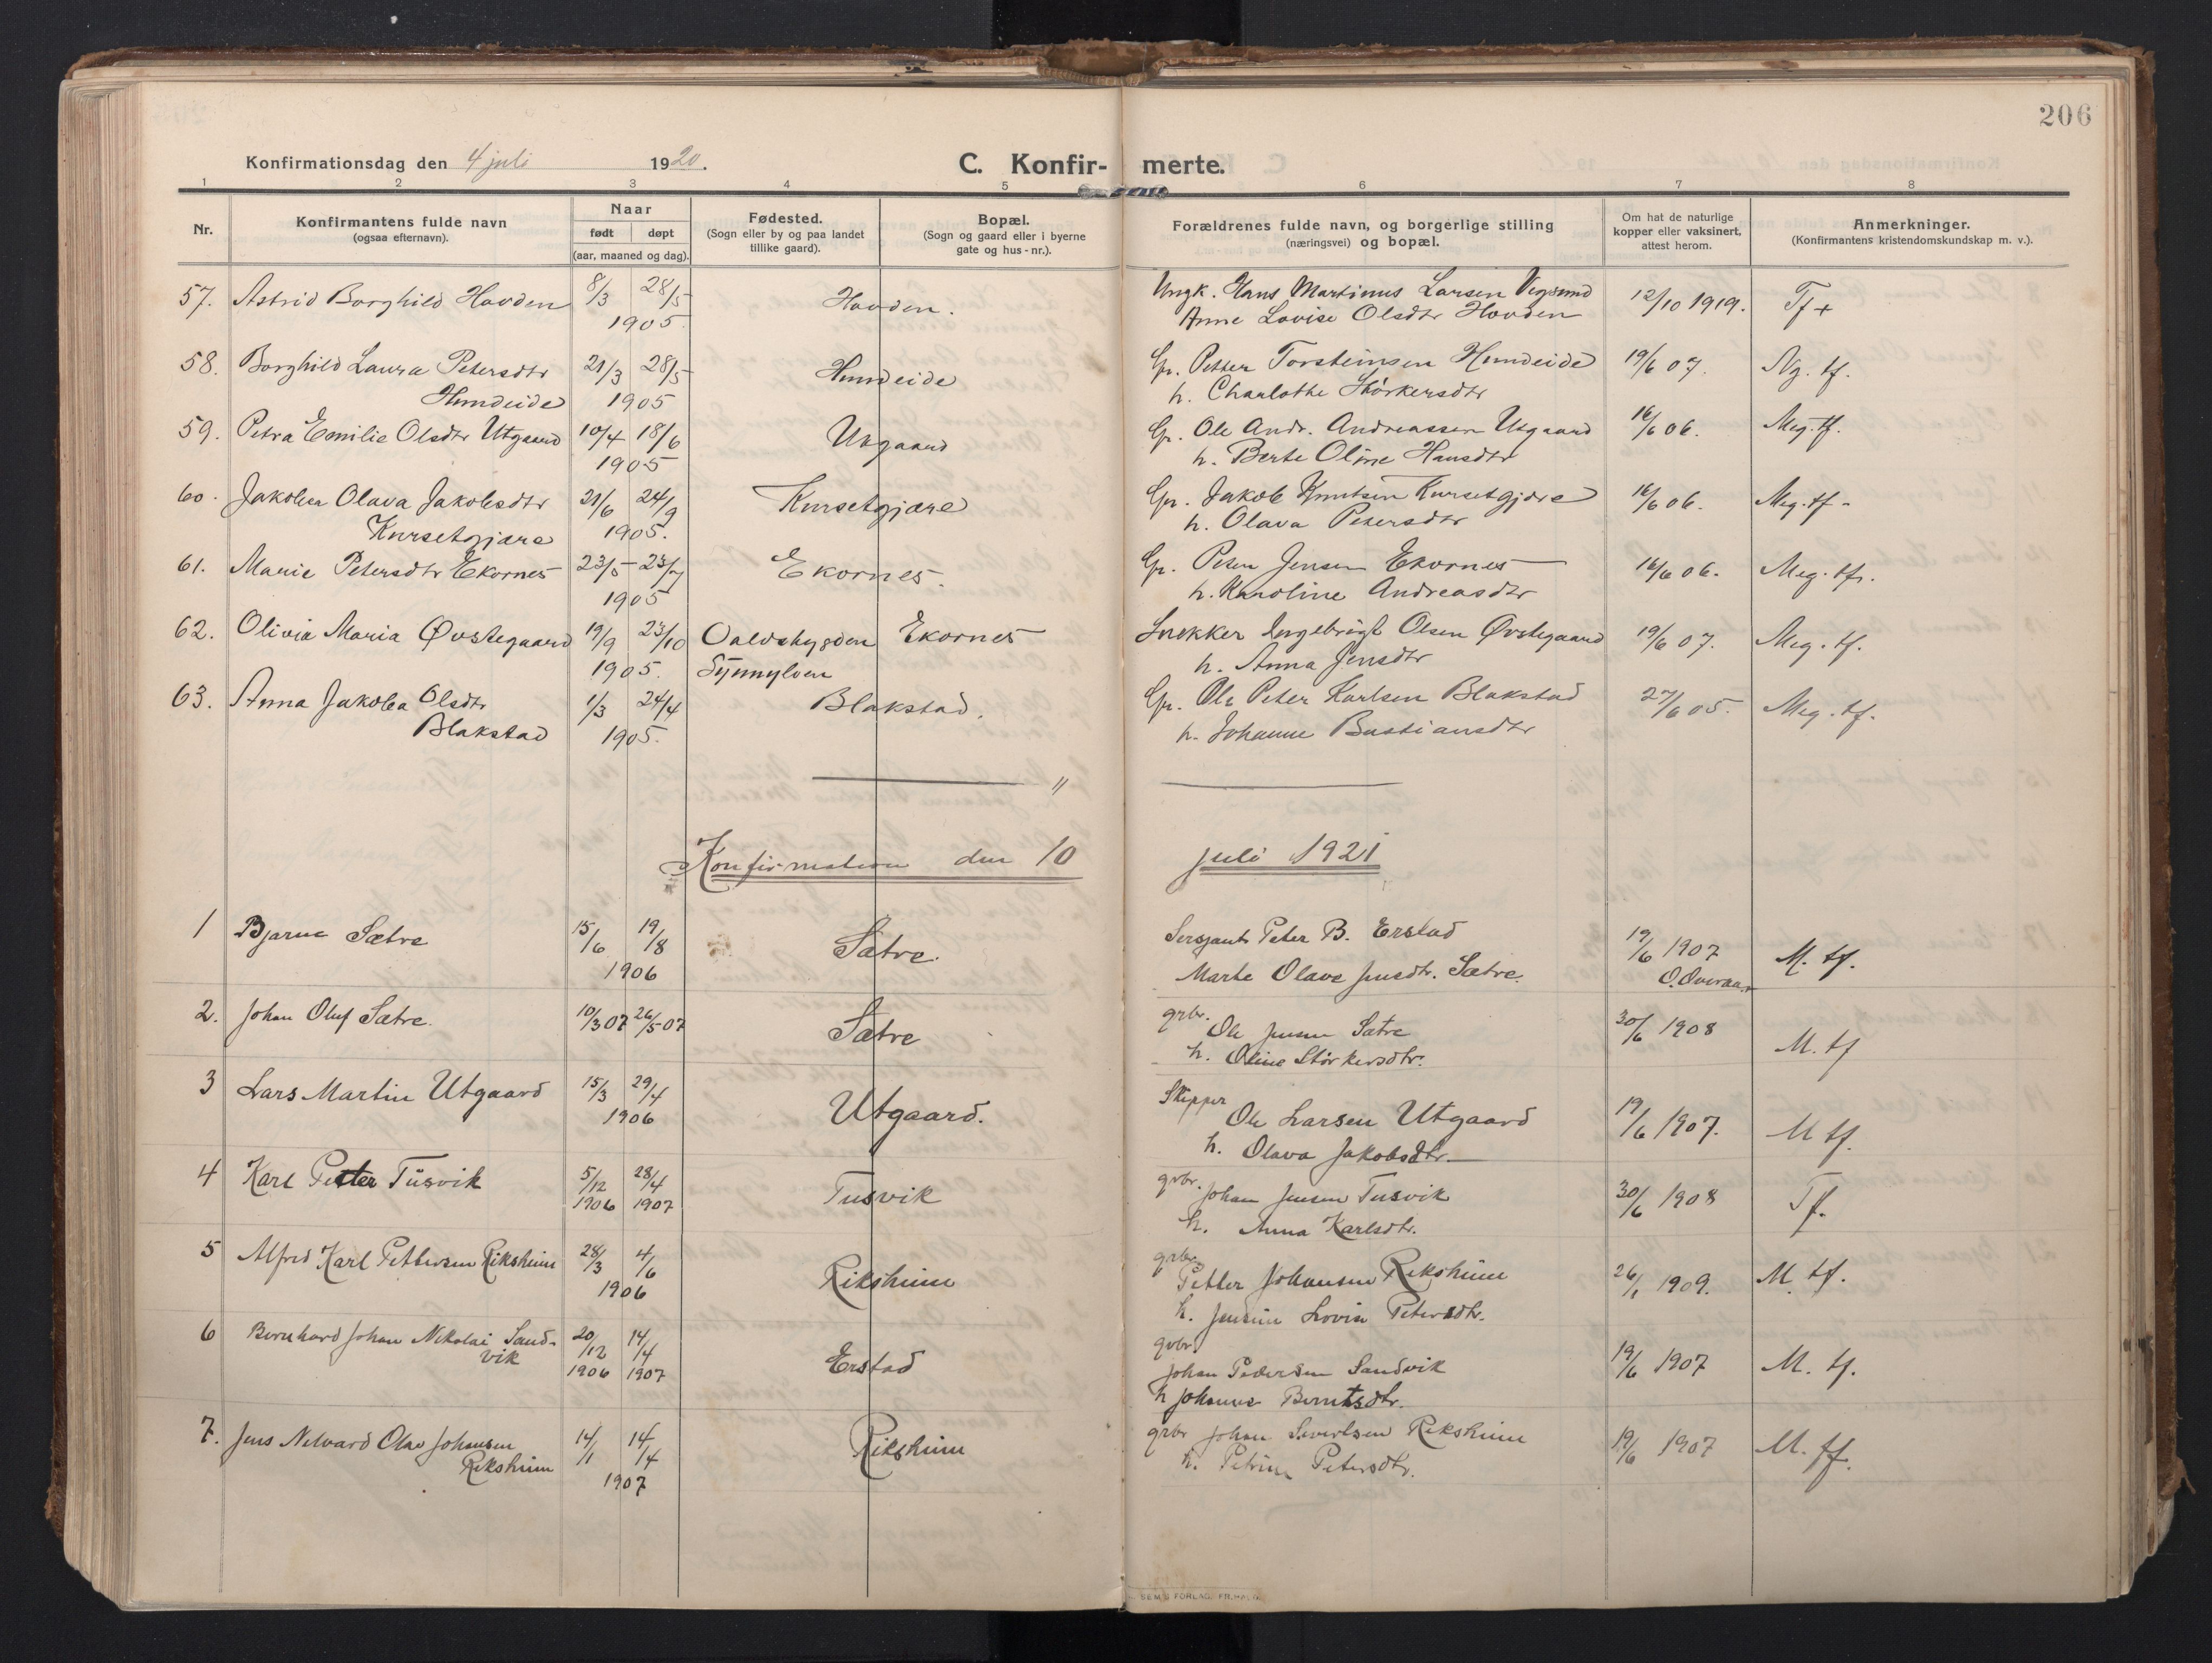 206
Konfirmationsdag den 4 juli 1920.
C. Konfir- merte.
1 2 3 4 5 6 7 8
Nr.
Konfirmantens fulde navn
(ogsaa efternavn).
Naar
født døpt
(aar, maaned og dag).
Fødested.
(Sogn eller by og paa landet
tillike gaard).
Bopæl.
(Sogn og gaard eller i byerne
gate og hus-nr.).
Forældrenes fulde navn, og borgerlige stilling
(næringsvei) og bopæl.
Om hat de naturlige
kopper eller vaksinert,
attest herom.
Anmerkninger.
(Konfirmantens kristendomskundskap m. v.).
57. Astrid Borghild Hovden 8/3 28/5 Hovden. Ungk. Hans Martinus Larsen Vigsund 12/10 1919. Tf +
1905 Anne Lovise Olsdtr Hovden
58. Borghild Laura Petersdtr 21/3 28/5 Hundeide Gr. Petter Torsteinsen Hundeide 19/6 07. Ng. tf.
Hundeide 1905 h. Charlothe Størkersdtr
59. Petra Emilie Olsdtr Utgaard 10/4 18/6 Utgaard Gr. Ole Andr. Andreassen Utgaard 16/6 06. Meg. tf.
1905 h. Berte Oline Hansdtr
60. Jakobea Olava Jakobsdtr 21/6 24/9 Kursetgjære Gr. Jakob Knutsen Kursetgjære 16/6 06. Meg. tf -
Kursetgjære 1905. h. Olava Petersdtr
61. Marie Petersdtr Ekornes 23/5 23/7 Ekornes. Gr. Peter Jensen Ekornes 16/6 06. Meg. tf.
1905 h. Karoline Andreasdtr
62. Olivia Maria Øvstegaard 19/9 23/10 Ekornes Snekker Ingebrigt Olsen Øvstegaard 19/6 07. Meg. tf.
1905. Synnylven h. Anna Jensdtr
63. Anna Jakoba Olsdtr 1/3 24/4 Blakstad. Gr. Ole Peter Karlsen Blakstad 27/6 05. Meg. tf.
Blakstad 1905. h. Johanne Bastiansdtr
"
Konfirmation den 10 juli 1921
1 Bjarne Sætre 15/6 19/8 Sætre. Sersjant Peter B. Erstad 19/6 1907 M. tf.
1906 Marte Olave Jensdtr. Sætre. O. Øveraa
2. Johan Oluf Sætre. 10/3 07 26/5 07 Sætre grbr. Ole Jensen Sætre 30/6 1908 M. tf
h. Oline Størkersdtr.
3 Lars Martin Utgaard 15/3 29/4 Utgaard. Skipper Ole Larsen Utgaard 19/6 1907. M tf.
1906 h. Olava Jakobsdtr.
4 Karl Petter Tusvik 5/12 28/4 Tusvik grbr. Johan Jensen Tusvik 30/6 1908 Tf.
1906 1907 h. Anna Karlsdtr.
5 Alfred Karl Pettersen Riksheim 28/3 4/6 Riksheim grbr. Petter Johansen Riksheim 26/1 1909. M. tf.
1906 h. Jensine Lovise Petersdtr.
6 Bernhard Johan Nikolai Sand- 20/12 14/4 Erstad grbr. Johan Pedersen Sandvik 19/6 1907 M. tf.
vik 1906 1907 h Johanne Berntsdtr.
7. Jens Nelvard Olav Johansen 14/1 14/4 Riksheim grbr Johan Sivertsen Riksheim 19/6 1907 M. tf.
Riksheim 1907 h. Petrine Petersdtr.
SEM'S FORLAG